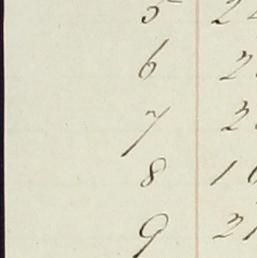 5 2
6 2
7 2
8 1
9 21